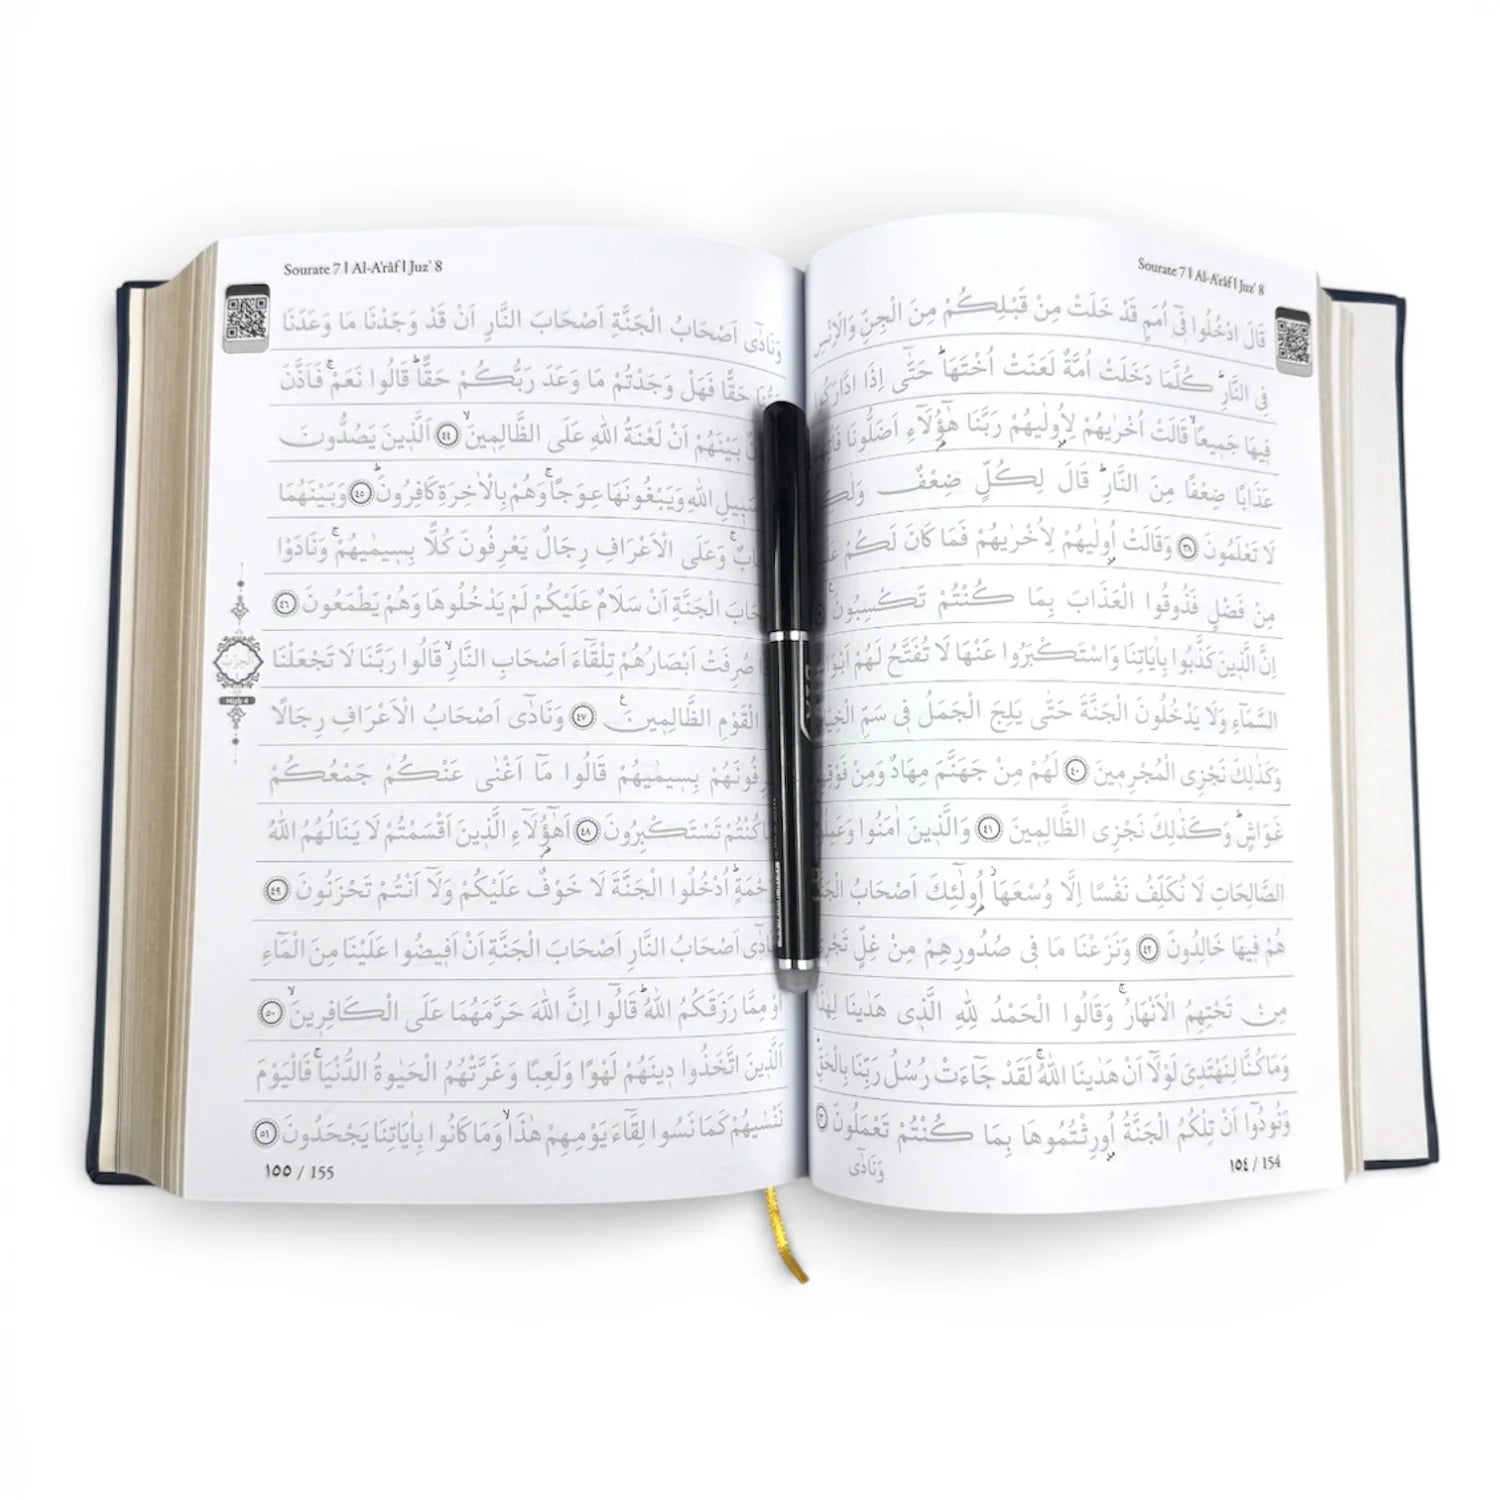 Sourate 7 | Al-A'râf | Juz' 8
قَالَ ادْخُلُوا فٖٓي اُمَمٍ قَدْ خَلَتْ مِنْ قَبْلِكُمْ مِنَ الْجِنِّ وَالْاِنْسِ
فِي النَّارِۜ كُلَّمَا دَخَلَتْ اُمَّةٌ لَعَنَتْ اُخْتَهَاۜ حَتّٰٓى اِذَا ادَّارَكُوا
فٖيهَا جَمٖيعًاۙ قَالَتْ اُخْرٰيهُمْ لِاُو۫لٰيهُمْ رَبَّنَا هٰٓؤُ۬لَٓاءِ اَضَلُّونَا
عَذَابًا ضِعْفًا مِنَ النَّارِۜ قَالَ لِكُلٍّ ضِعْفٌ
لَا تَعْلَمُونَ ٣٨ وَقَالَتْ اُو۫لٰيهُمْ لِاُخْرٰيهُمْ فَمَا كَانَ لَكُمْ
مِنْ فَضْلٍ فَذُوقُوا الْعَذَابَ بِمَا كُنْتُمْ تَكْسِبُونَۚ
اِنَّ الَّذٖينَ كَذَّبُوا بِاٰيَاتِنَا وَاسْتَكْبَرُوا عَنْهَا لَا تُفَتَّحُ لَهُمْ
السَّمَٓاءِ وَلَا يَدْخُلُونَ الْجَنَّةَ حَتّٰى يَلِجَ الْجَمَلُ فٖي سَمِّ
وَكَذٰلِكَ نَجْزِي الْمُجْرِمٖينَ ٤٠ لَهُمْ مِنْ جَهَنَّمَ مِهَادٌ وَمِنْ
غَوَاشٍۜ وَكَذٰلِكَ نَجْزِي الظَّالِمٖينَ ٤١ وَالَّذٖينَ اٰمَنُوا
الصَّالِحَاتِ لَا نُكَلِّفُ نَفْسًا اِلَّا وُسْعَهَاۘ اُو۬لٰٓئِكَ اَصْحَابُ
هُمْ فٖيهَا خَالِدُونَ ٤٢ وَنَزَعْنَا مَا فٖي صُدُورِهِمْ مِنْ غِلٍّ
مِنْ تَحْتِهِمُ الْاَنْهَارُۚ وَقَالُوا الْحَمْدُ لِلّٰهِ الَّذٖي هَدٰينَا لِهٰذَا
وَمَا كُنَّا لِنَهْتَدِيَ لَوْلَٓا اَنْ هَدٰينَا اللّٰهُۚ لَقَدْ جَٓاءَتْ رُسُلُ رَبِّنَا بِالْحَقِّۜ
وَنُودُٓوا اَنْ تِلْكُمُ الْجَنَّةُ اُو۫رِثْتُمُوهَا بِمَا كُنْتُمْ تَعْمَلُونَ
وَنَادٰٓى
١٥٤ / 154
Sourate 7 | Al-A'râf | Juz' 8
وَنَادٰٓى اَصْحَابُ الْجَنَّةِ اَصْحَابَ النَّارِ اَنْ قَدْ وَجَدْنَا مَا وَعَدَنَا
حَقًّا فَهَلْ وَجَدْتُمْ مَا وَعَدَ رَبُّكُمْ حَقًّاۜ قَالُوا نَعَمْۚ فَاَذَّنَ
بَيْنَهُمْ اَنْ لَعْنَةُ اللّٰهِ عَلَى الظَّالِمٖينَۙ ٤٤ اَلَّذٖينَ يَصُدُّونَ
سَبٖيلِ اللّٰهِ وَيَبْغُونَهَا عِوَجًاۚ وَهُمْ بِالْاٰخِرَةِ كَافِرُونَۜ ٤٥ وَبَيْنَهُمَا
وَعَلَى الْاَعْرَافِ رِجَالٌ يَعْرِفُونَ كُلًّا بِسٖيمٰيهُمْۚ وَنَادَوْا
الْجَنَّةِ اَنْ سَلَامٌ عَلَيْكُمْ لَمْ يَدْخُلُوهَا وَهُمْ يَطْمَعُونَ ٤٦
صُرِفَتْ اَبْصَارُهُمْ تِلْقَٓاءَ اَصْحَابِ النَّارِۙ قَالُوا رَبَّنَا لَا تَجْعَلْنَا
الْقَوْمِ الظَّالِمٖينَ ٤٧ وَنَادٰٓى اَصْحَابُ الْاَعْرَافِ رِجَالًا
بِسٖيمٰيهُمْ قَالُوا مَٓا اَغْنٰى عَنْكُمْ جَمْعُكُمْ
كُنْتُمْ تَسْتَكْبِرُونَ ٤٨ اَهٰٓؤُ۬لَٓاءِ الَّذٖينَ اَقْسَمْتُمْ لَا يَنَالُهُمُ اللّٰهُ
اُدْخُلُوا الْجَنَّةَ لَا خَوْفٌ عَلَيْكُمْ وَلَٓا اَنْتُمْ تَحْزَنُونَ ٤٩
اَصْحَابُ النَّارِ اَصْحَابَ الْجَنَّةِ اَنْ اَفٖيضُوا عَلَيْنَا مِنَ الْمَٓاءِ
اَوْ مِمَّا رَزَقَكُمُ اللّٰهُۜ قَالُٓوا اِنَّ اللّٰهَ حَرَّمَهُمَا عَلَى الْكَافِرٖينَۙ ٥٠
اَلَّذٖينَ اتَّخَذُوا دٖينَهُمْ لَهْوًا وَلَعِبًا وَغَرَّتْهُمُ الْحَيٰوةُ الدُّنْيَاۚ فَالْيَوْمَ
نَنْسٰيهُمْ كَمَا نَسُوا لِقَٓاءَ يَوْمِهِمْ هٰذَاۙ وَمَا كَانُوا بِاٰيَاتِنَا يَجْحَدُونَ ٥١
١٥٥ / 155